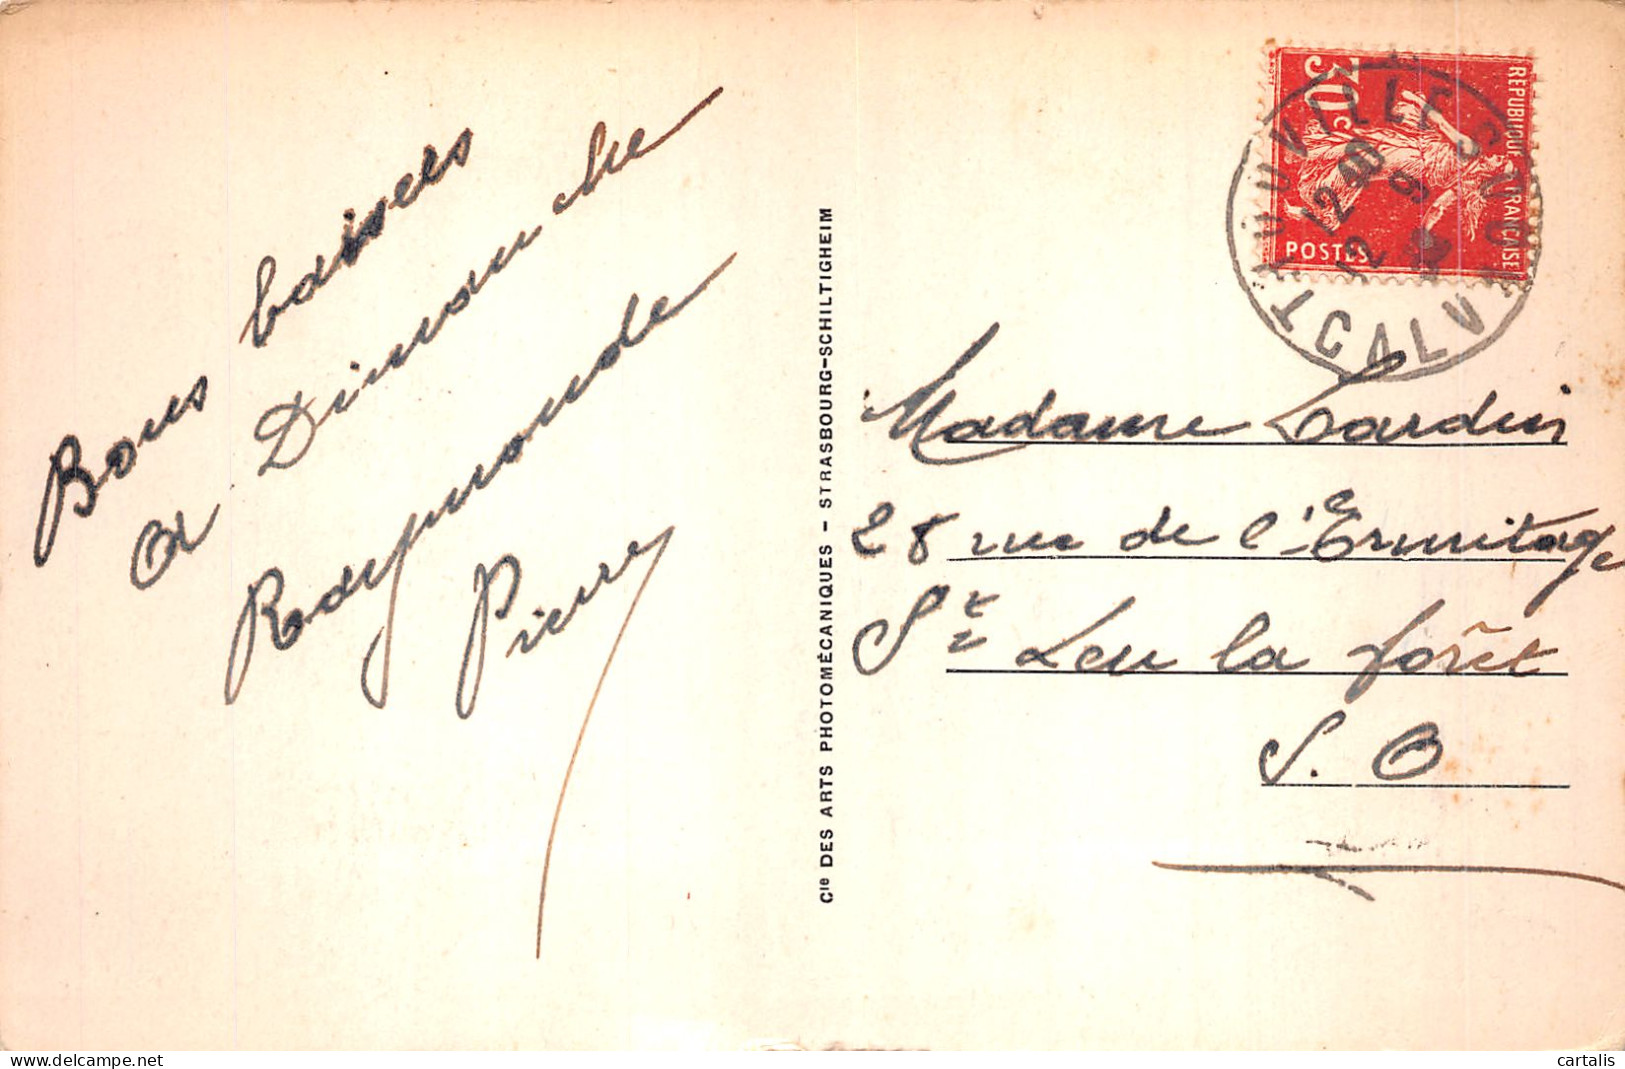 Bons baisers
A Dimanche
Raymonde
Pierre
Cie DES ARTS PHOTOMÉCANIQUES - STRASBOURG-SCHILTIGHEIM
30c
REPUBLIQUE FRANÇAISE
POSTES
TROUVILLE S
CALV
12 40
12 9
Madame Lardin
28 rue de l'Ermitage
St Leu la forêt
S. O
cartalis